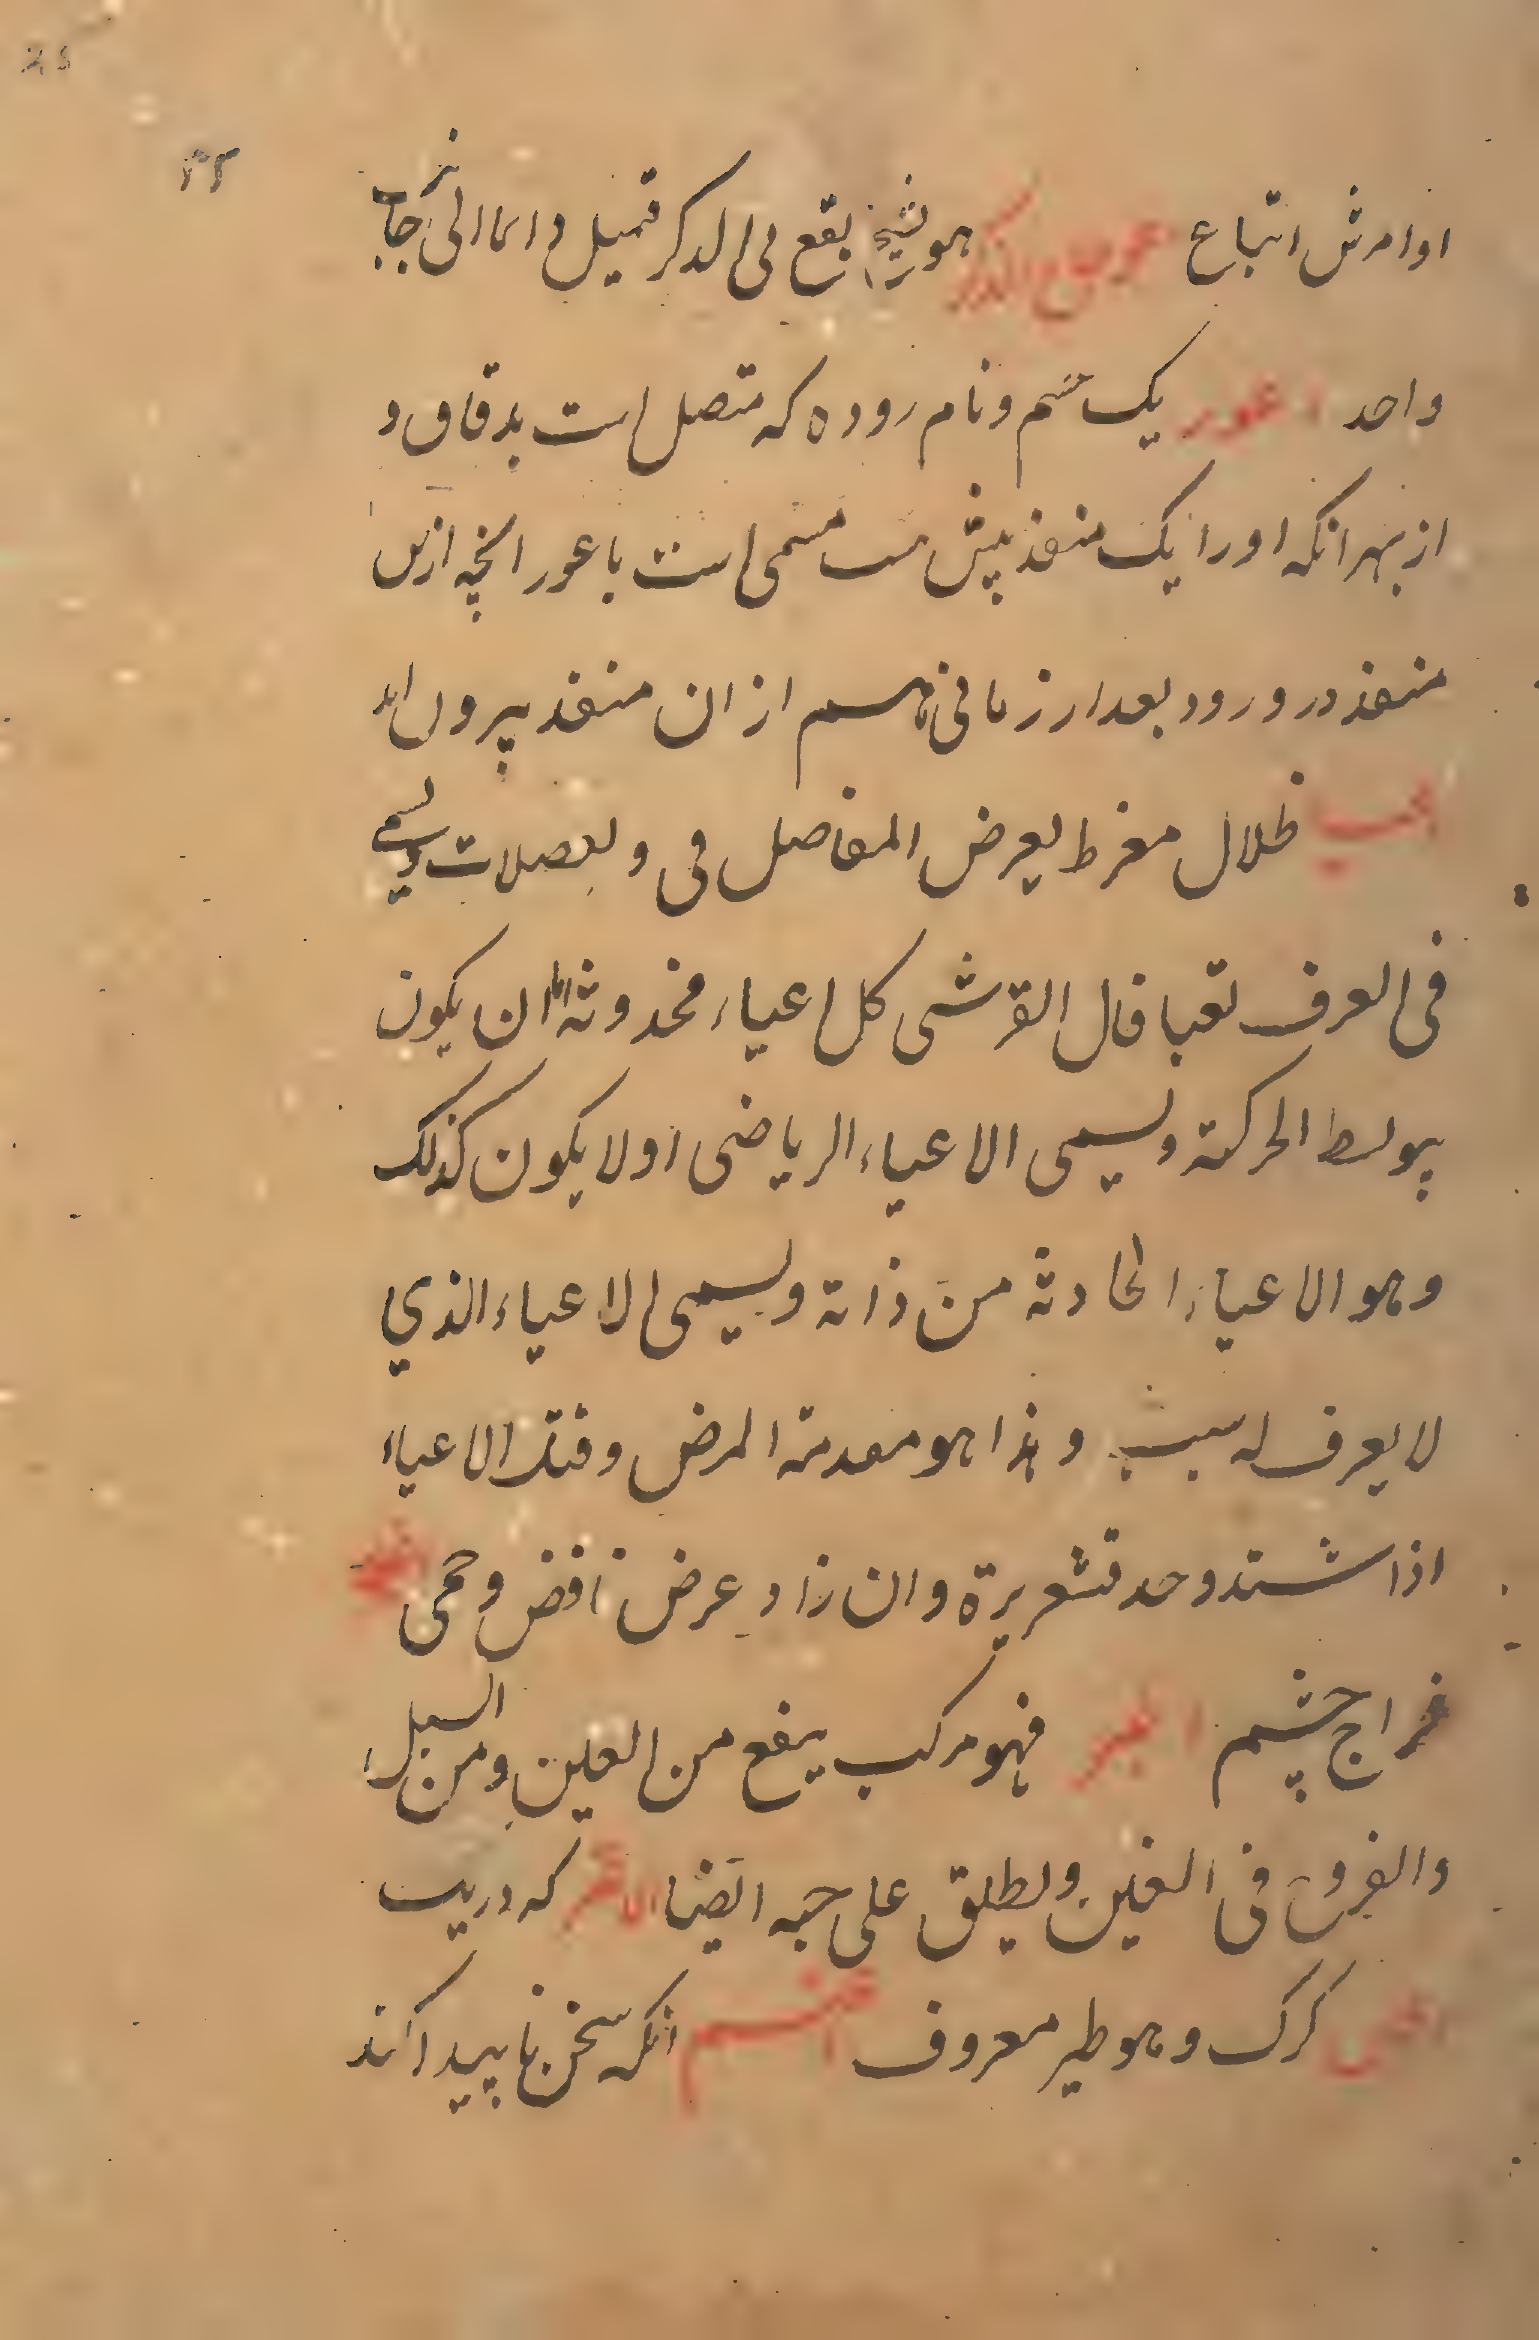 اوامرش اتباع هو تشنج یقع فی الذکر فتمیل دائما الی جانب
واحد اعور یک چشم و نام روده که متصل است بدقاق و
از بهر انکه او را یک منفذ بیش نیست مسمی است باعور انچه ازین
منفذ در ورود بعد از زمانی هم از ان منفذ بیرون اید
ظلال مفرط یعرض المفاصل فی و لعضلات ویسمی
فی العرف تعبا قال القرشی کل اعیاء فحدوثه اما ان یکون
بوسط الحرکة ویسمی الاعیاء الریاضی اولا یکون کذلک
وهو الاعیاء الحادثة من ذاته ویسمی الاعیاء الذی
لا یعرف له سبب وهذا هو مقدمة المرض و الاعیاء
اذا اشتد وحد قشعریرة وان زاد عرض نافض وحمی
فراخ چشم اغبر فهو مرکب ینفع من العین ومن السبل
والقروح فی العین ویطلق علی حبه ایضا
کرک وهو طیر معروف انکه سخن ناپیدا کند